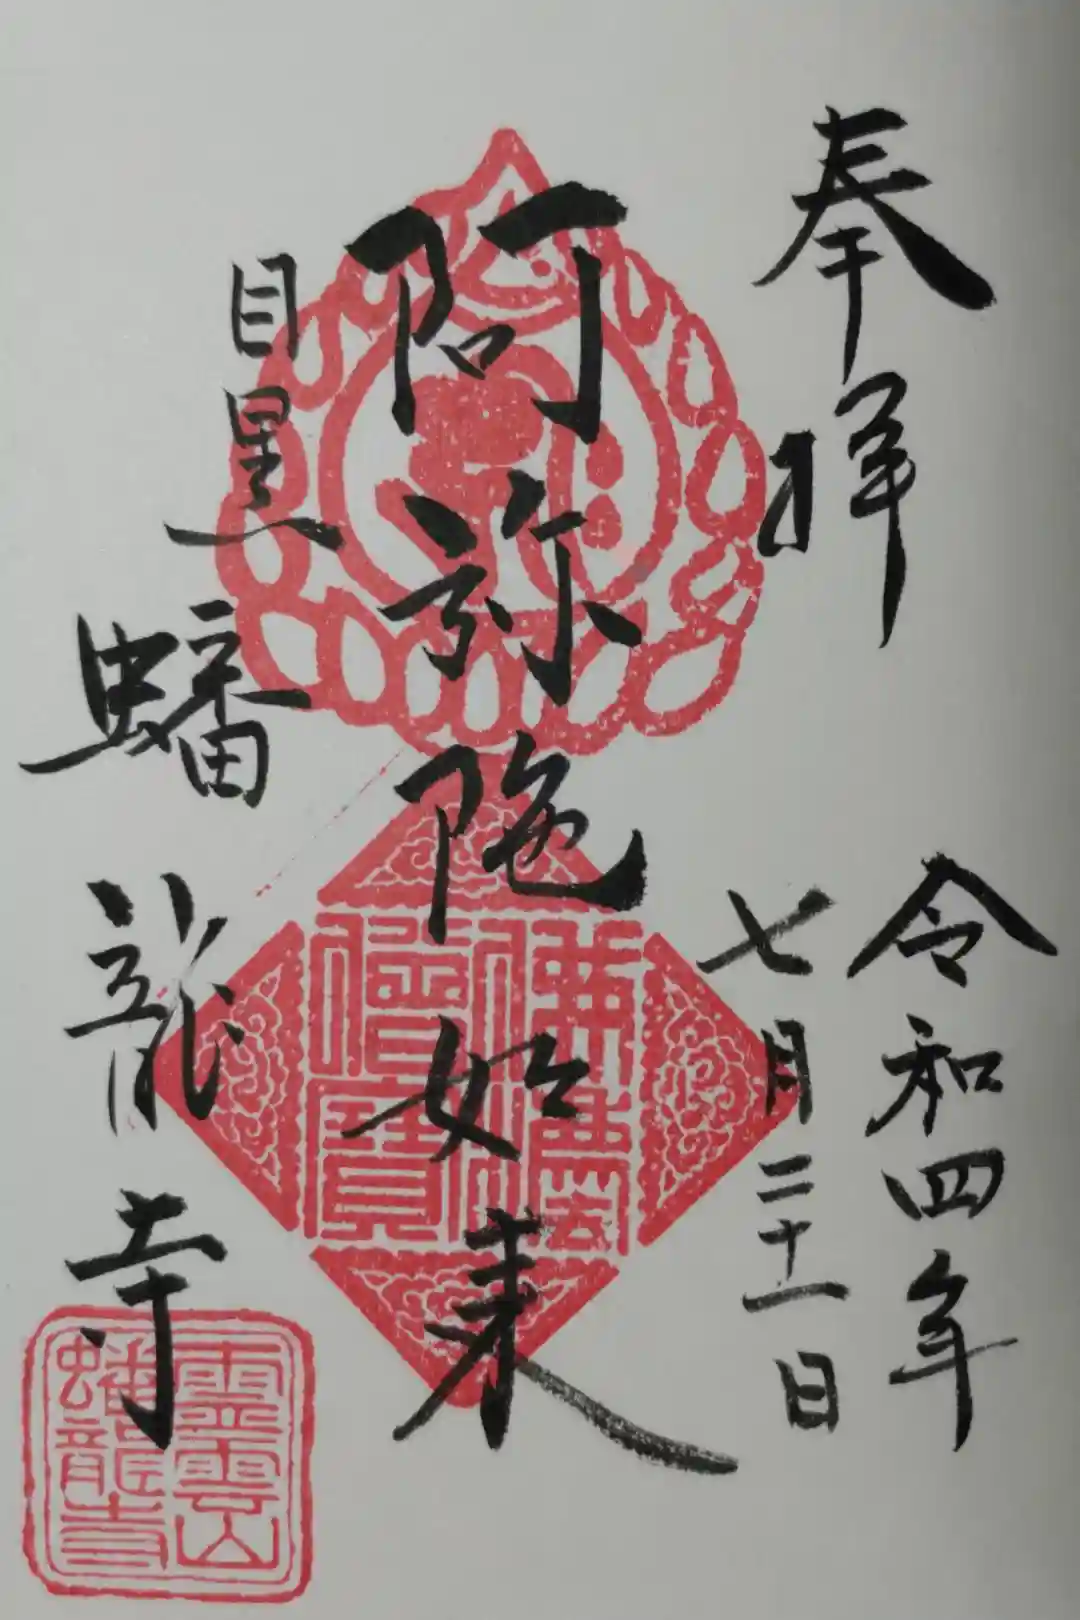 奉拝
令和四年
七月二十一日
阿弥陀如来
目黒
蟠龍寺
佛法
僧寳
霊雲山
蟠龍寺